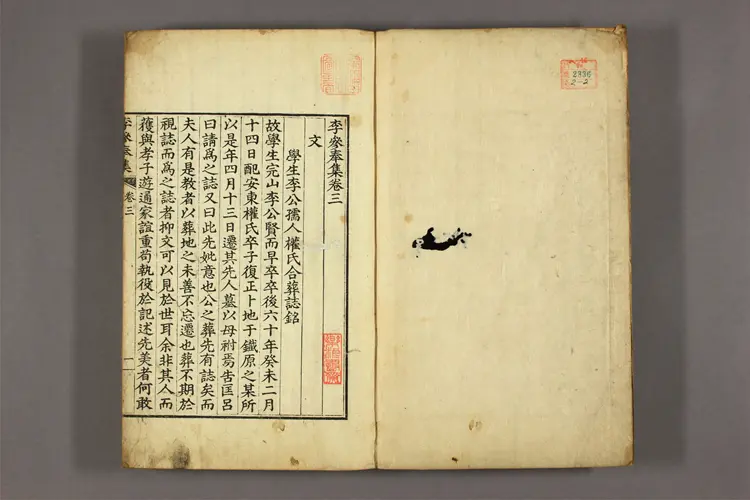 2336
2-2
李參奉集卷三
文
學生李公孺人權氏合葬誌銘
故學生完山李公賢而早卒卒後六十年癸未二月
十四日配安東權氏卒子復正卜地于鐵原之某所
以是年四月十三日遷其先人墓以母祔焉吿匡呂
曰請爲之誌又曰此先妣意也公之葬先有誌矣而
夫人有是敎者以葬地之未善不忘遷也葬不期於
視誌而爲之誌者抑文可以見於世耳余非其人而
獲與孝子遊通家誼重苟執役於記述先美者何敢
李參奉集 卷三 一